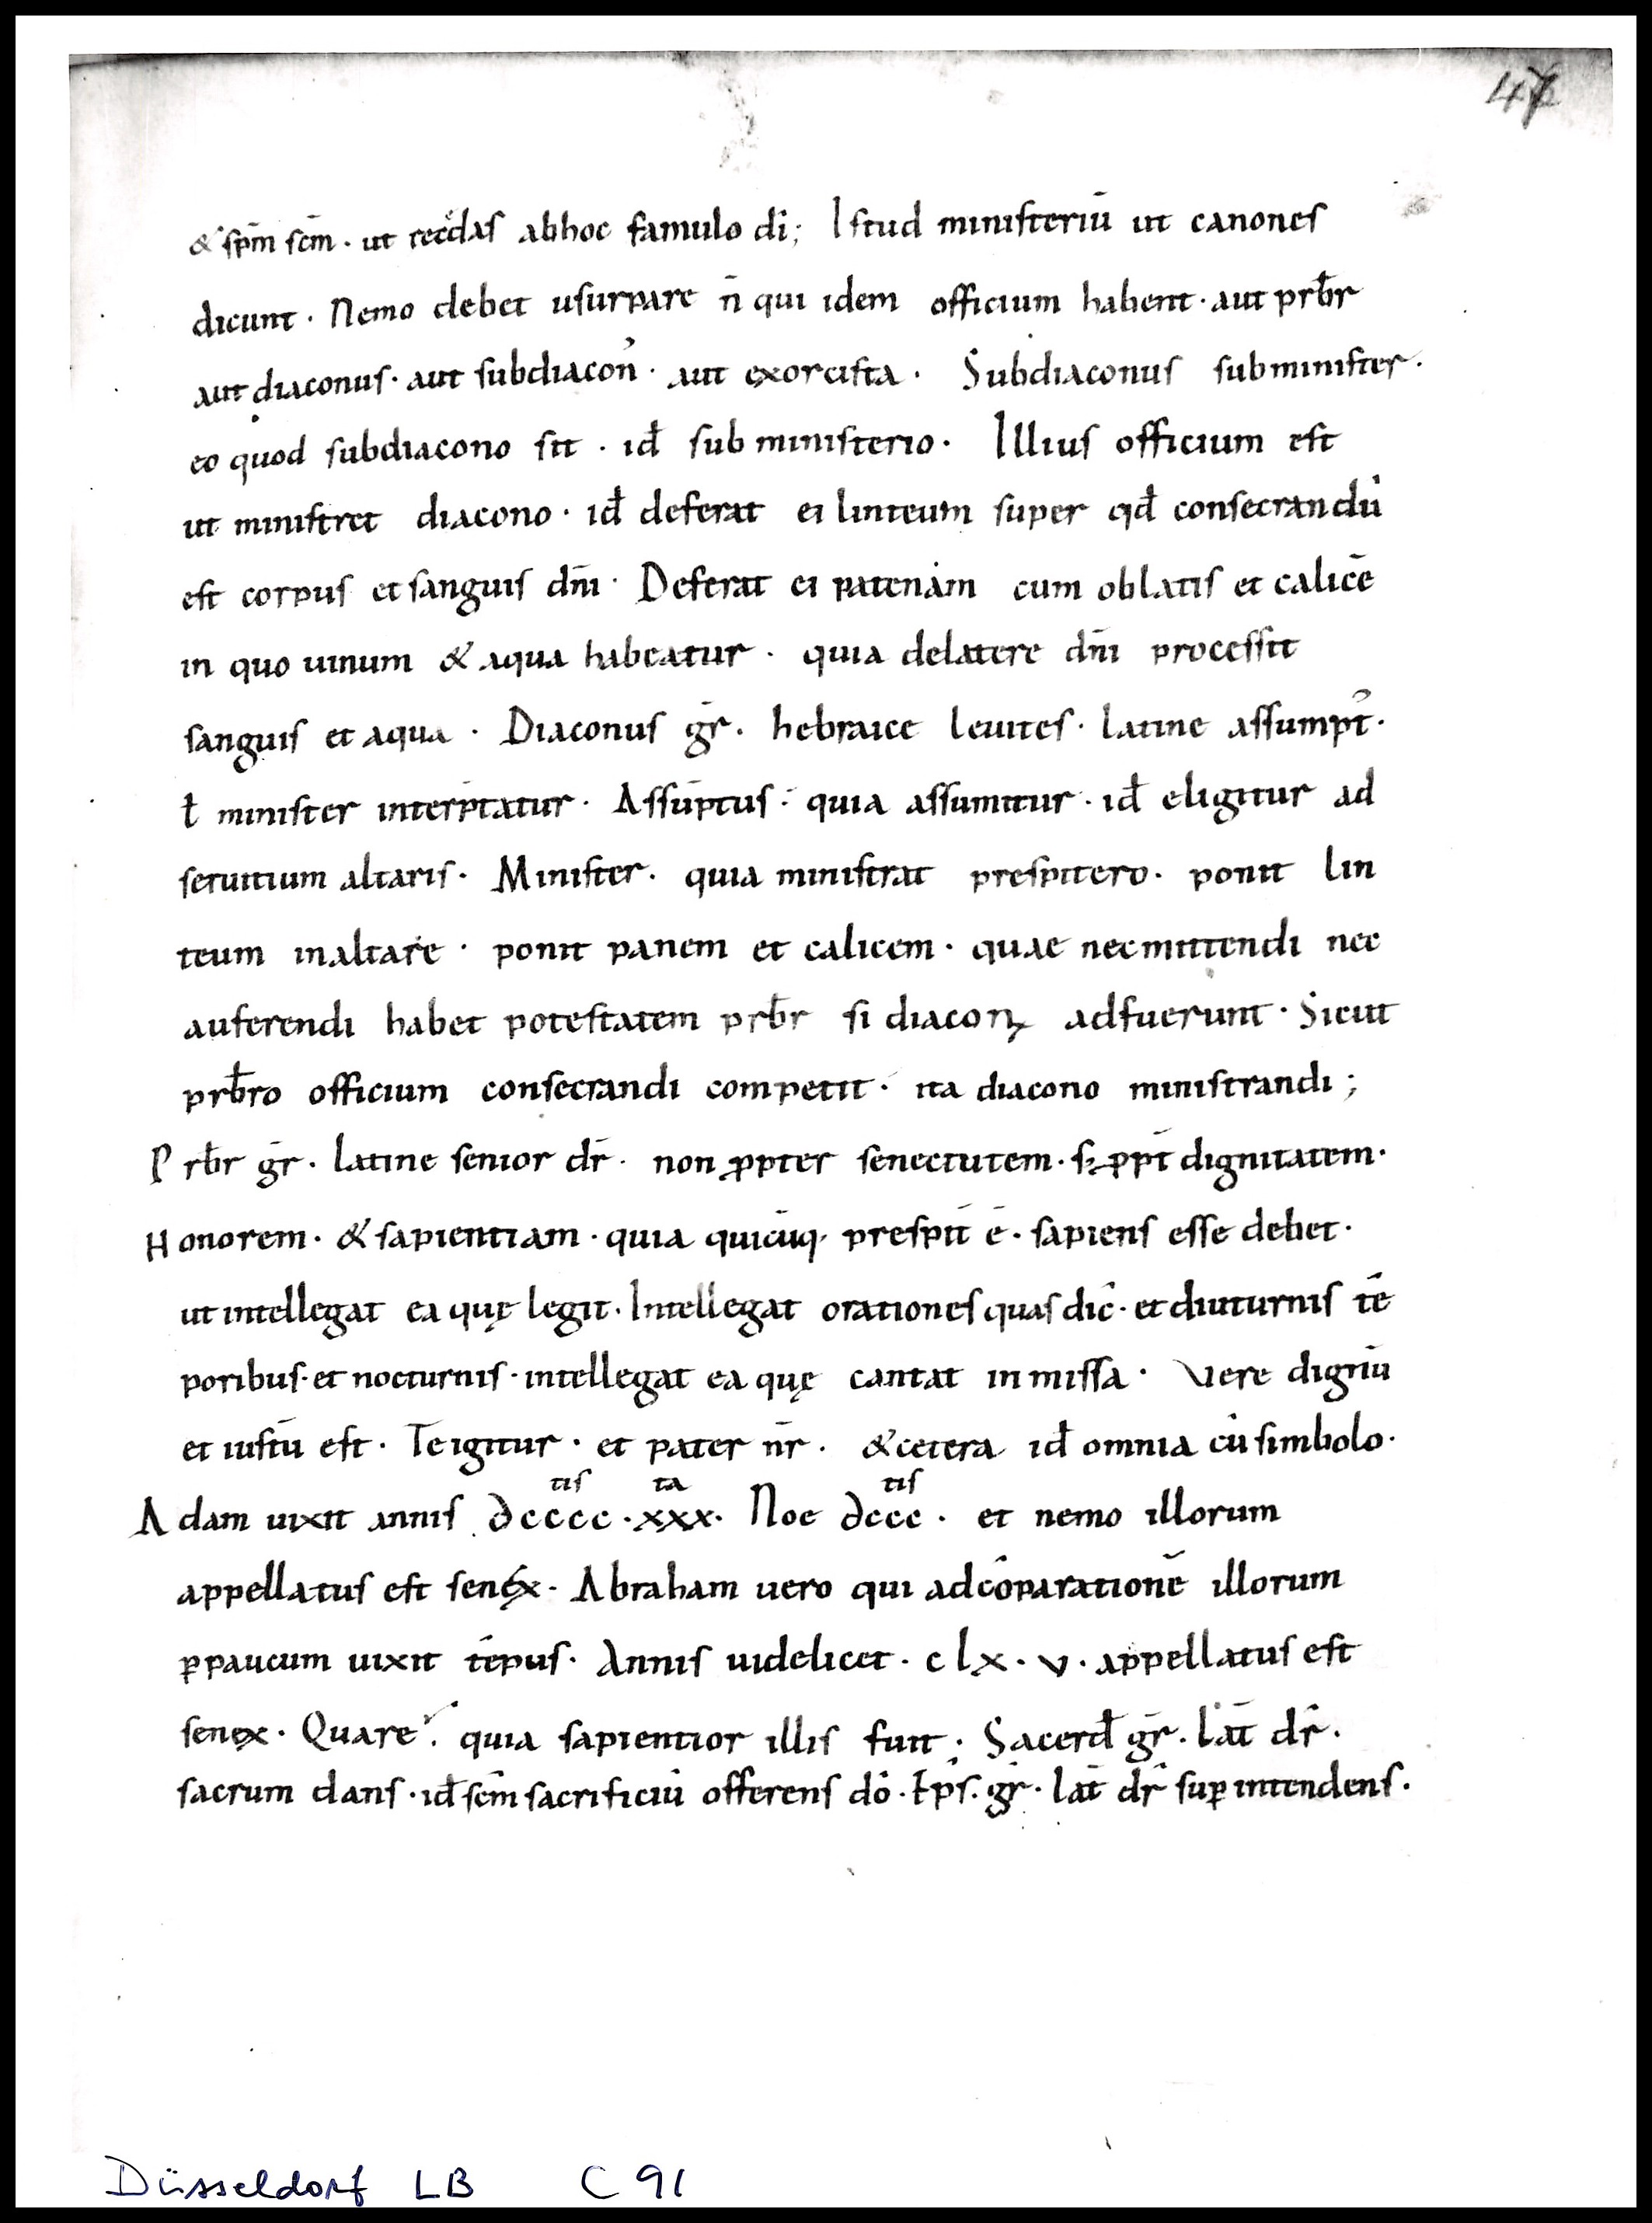 47
& sp̄m sc̄m · ut recedas abhoc famulo dī; Istud ministeriū ut canones
dicunt · Nemo debet usurpare n̄ qui idem officium habent · aut prb̄r
aut diaconus · aut subdiacon᾽ · aut exorcista · Subdiaconus subminister ·
eo quod subdiacono sit · id̄ sub ministerio · Illius officium est
ut ministret diacono · id̄ deferat ei linteum super qd̄ consecrandū
est corpus et sanguis dn̄i · Deferat ei patenam cum oblatis et calicē
in quo uinum & aqua habeatur · quia delatere dn̄i processit
sanguis et aqua · Diaconus gr̄ · hebraice leuites · latine assumpt᾽ ·
ł minister interp̄tatur · Assūptus · quia assumitur · id̄ eligitur ad
seruitium altaris · Minister · quia ministrat prespitero · ponit lin
teum inaltare · ponit panem et calicem · quae necmittendi nec
auferendi habet potestatem prb̄r si diacoꝝ adfuerunt · Sicut
prb̄ro officium consecrandi competit · ita diacono ministrandi ;
Prb̄r gr̄ · latine senior dr̄ · non ꝓpter senectutem · sꝫ ꝓpt̄ dignitatem ·
Honorem · & sapientiam · quia quicūq· prespit̄ ē · sapiens esse debet ·
ut intellegat ea quę legit · Intellegat orationes quas dic̄ · et diuturnis tē
poribus · et nocturnis · intellegat ea quę cantat in missa · Vere dignū
et iustū est · Te igitur · et pater nr̄ · & cetera id̄ omnia cū simbolo ·
tis ta tis
Adam uixit annis dcccc · xxx · Noe dccc · et nemo illorum
appellatus est senex · Abraham uero qui adcōparationē illorum
ꝑpaucum uixit tēpus · Annis uidelicet · c lx · v · appellatus est
senex · Quare? quia sapientior illis fuit ; Sacerd̄ gr̄ · lat̄ dr̄ ·
sacrum dans · id̄ sc̄m sacrificiū offerens dō · Ep̄s · gr̄ · lat̄ dr̄ suꝑintendens ·
Düsseldorf LB C 91